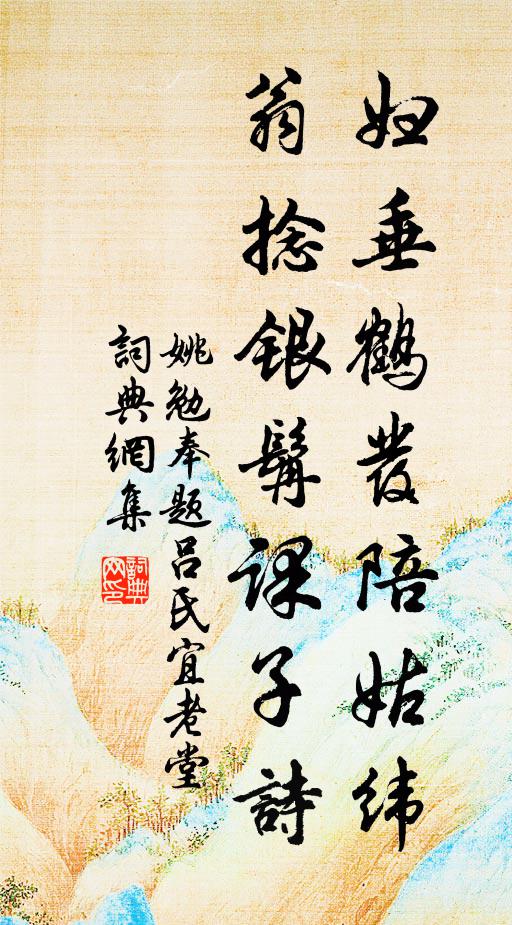 妇垂鹤发陪姑纬
翁捻銀髯課子詩
姚勉奉題吕氏宜老堂
詞典網集
詞典
网印